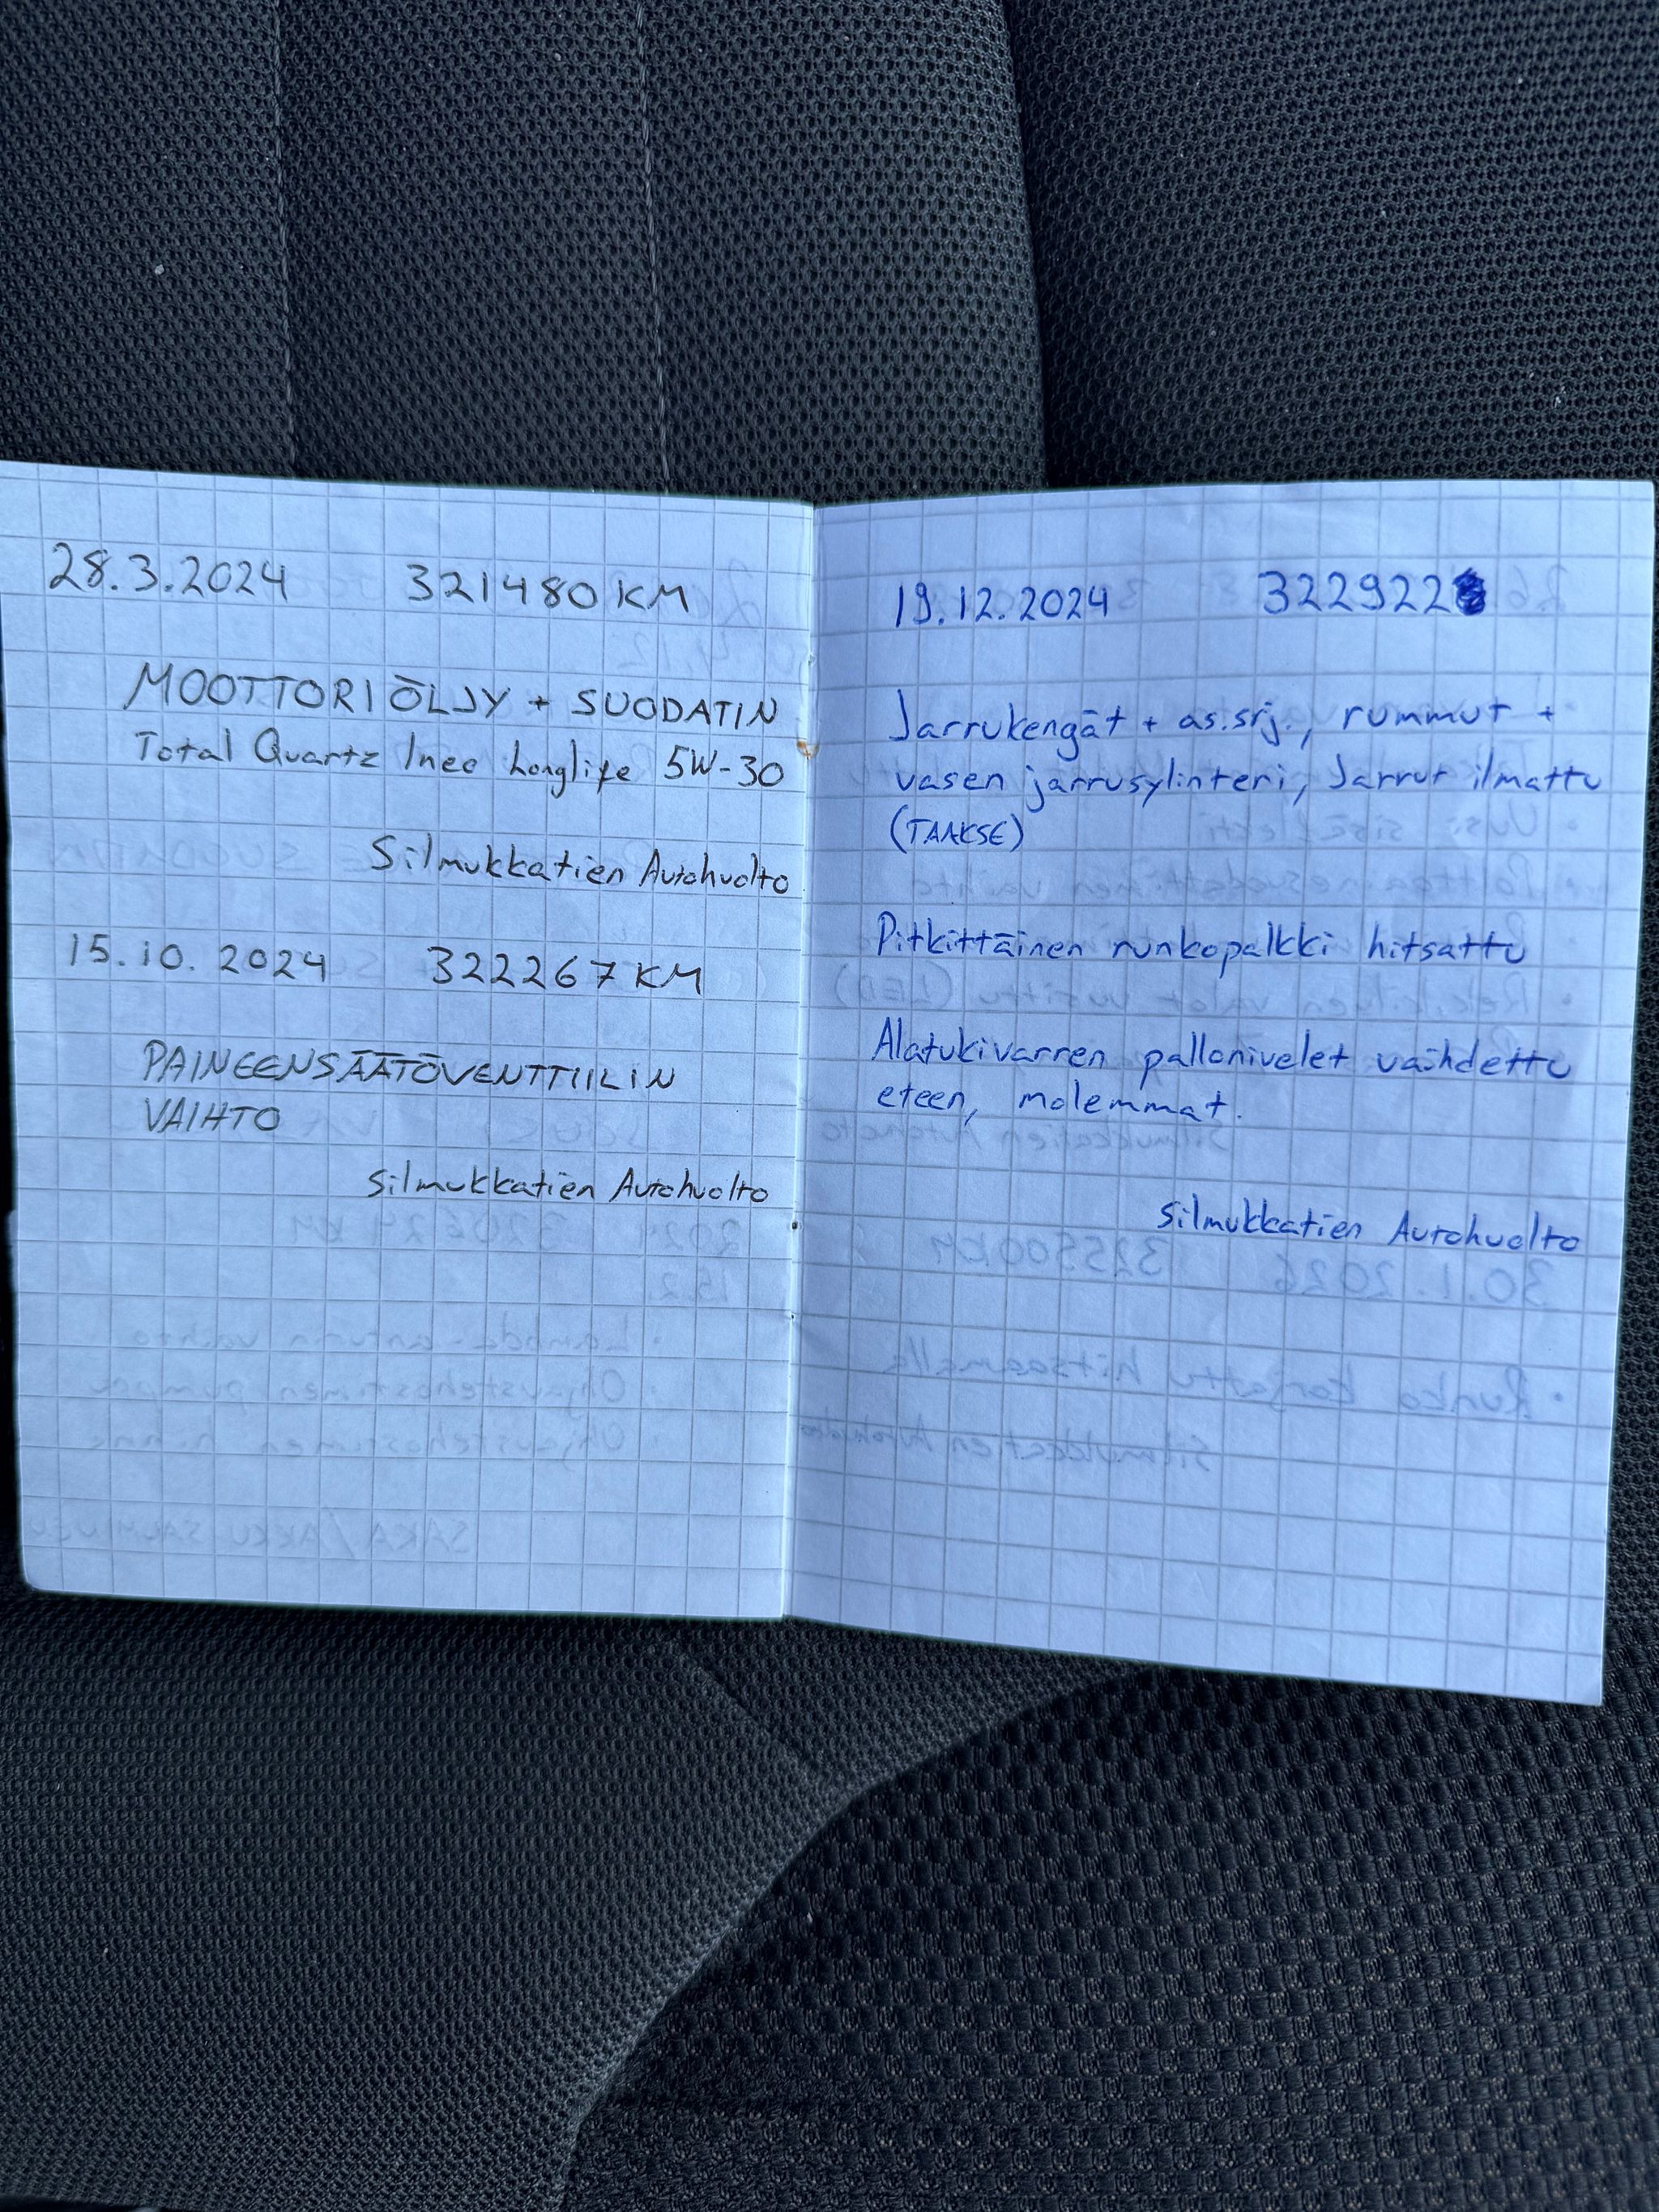 28.3.2024 321480 KM
MOOTTORIÖLJY + SUODATIN
Total Quartz Ineo Longlife 5W-30
Silmukkatien Autohuolto
15.10.2024 322267 KM
PAINEENSÄÄTÖVENTTIILIN
VAIHTO
Silmukkatien Autohuolto
19.12.2024 322922
Jarrukengät + as.srj., rummut +
vasen jarrusylinteri, Jarrut ilmattu
(TAAKSE)
Pitkittäinen runkopalkki hitsattu
Alatukivarren pallonivelet vaihdettu
eteen, molemmat.
Silmukkatien Autohuolto